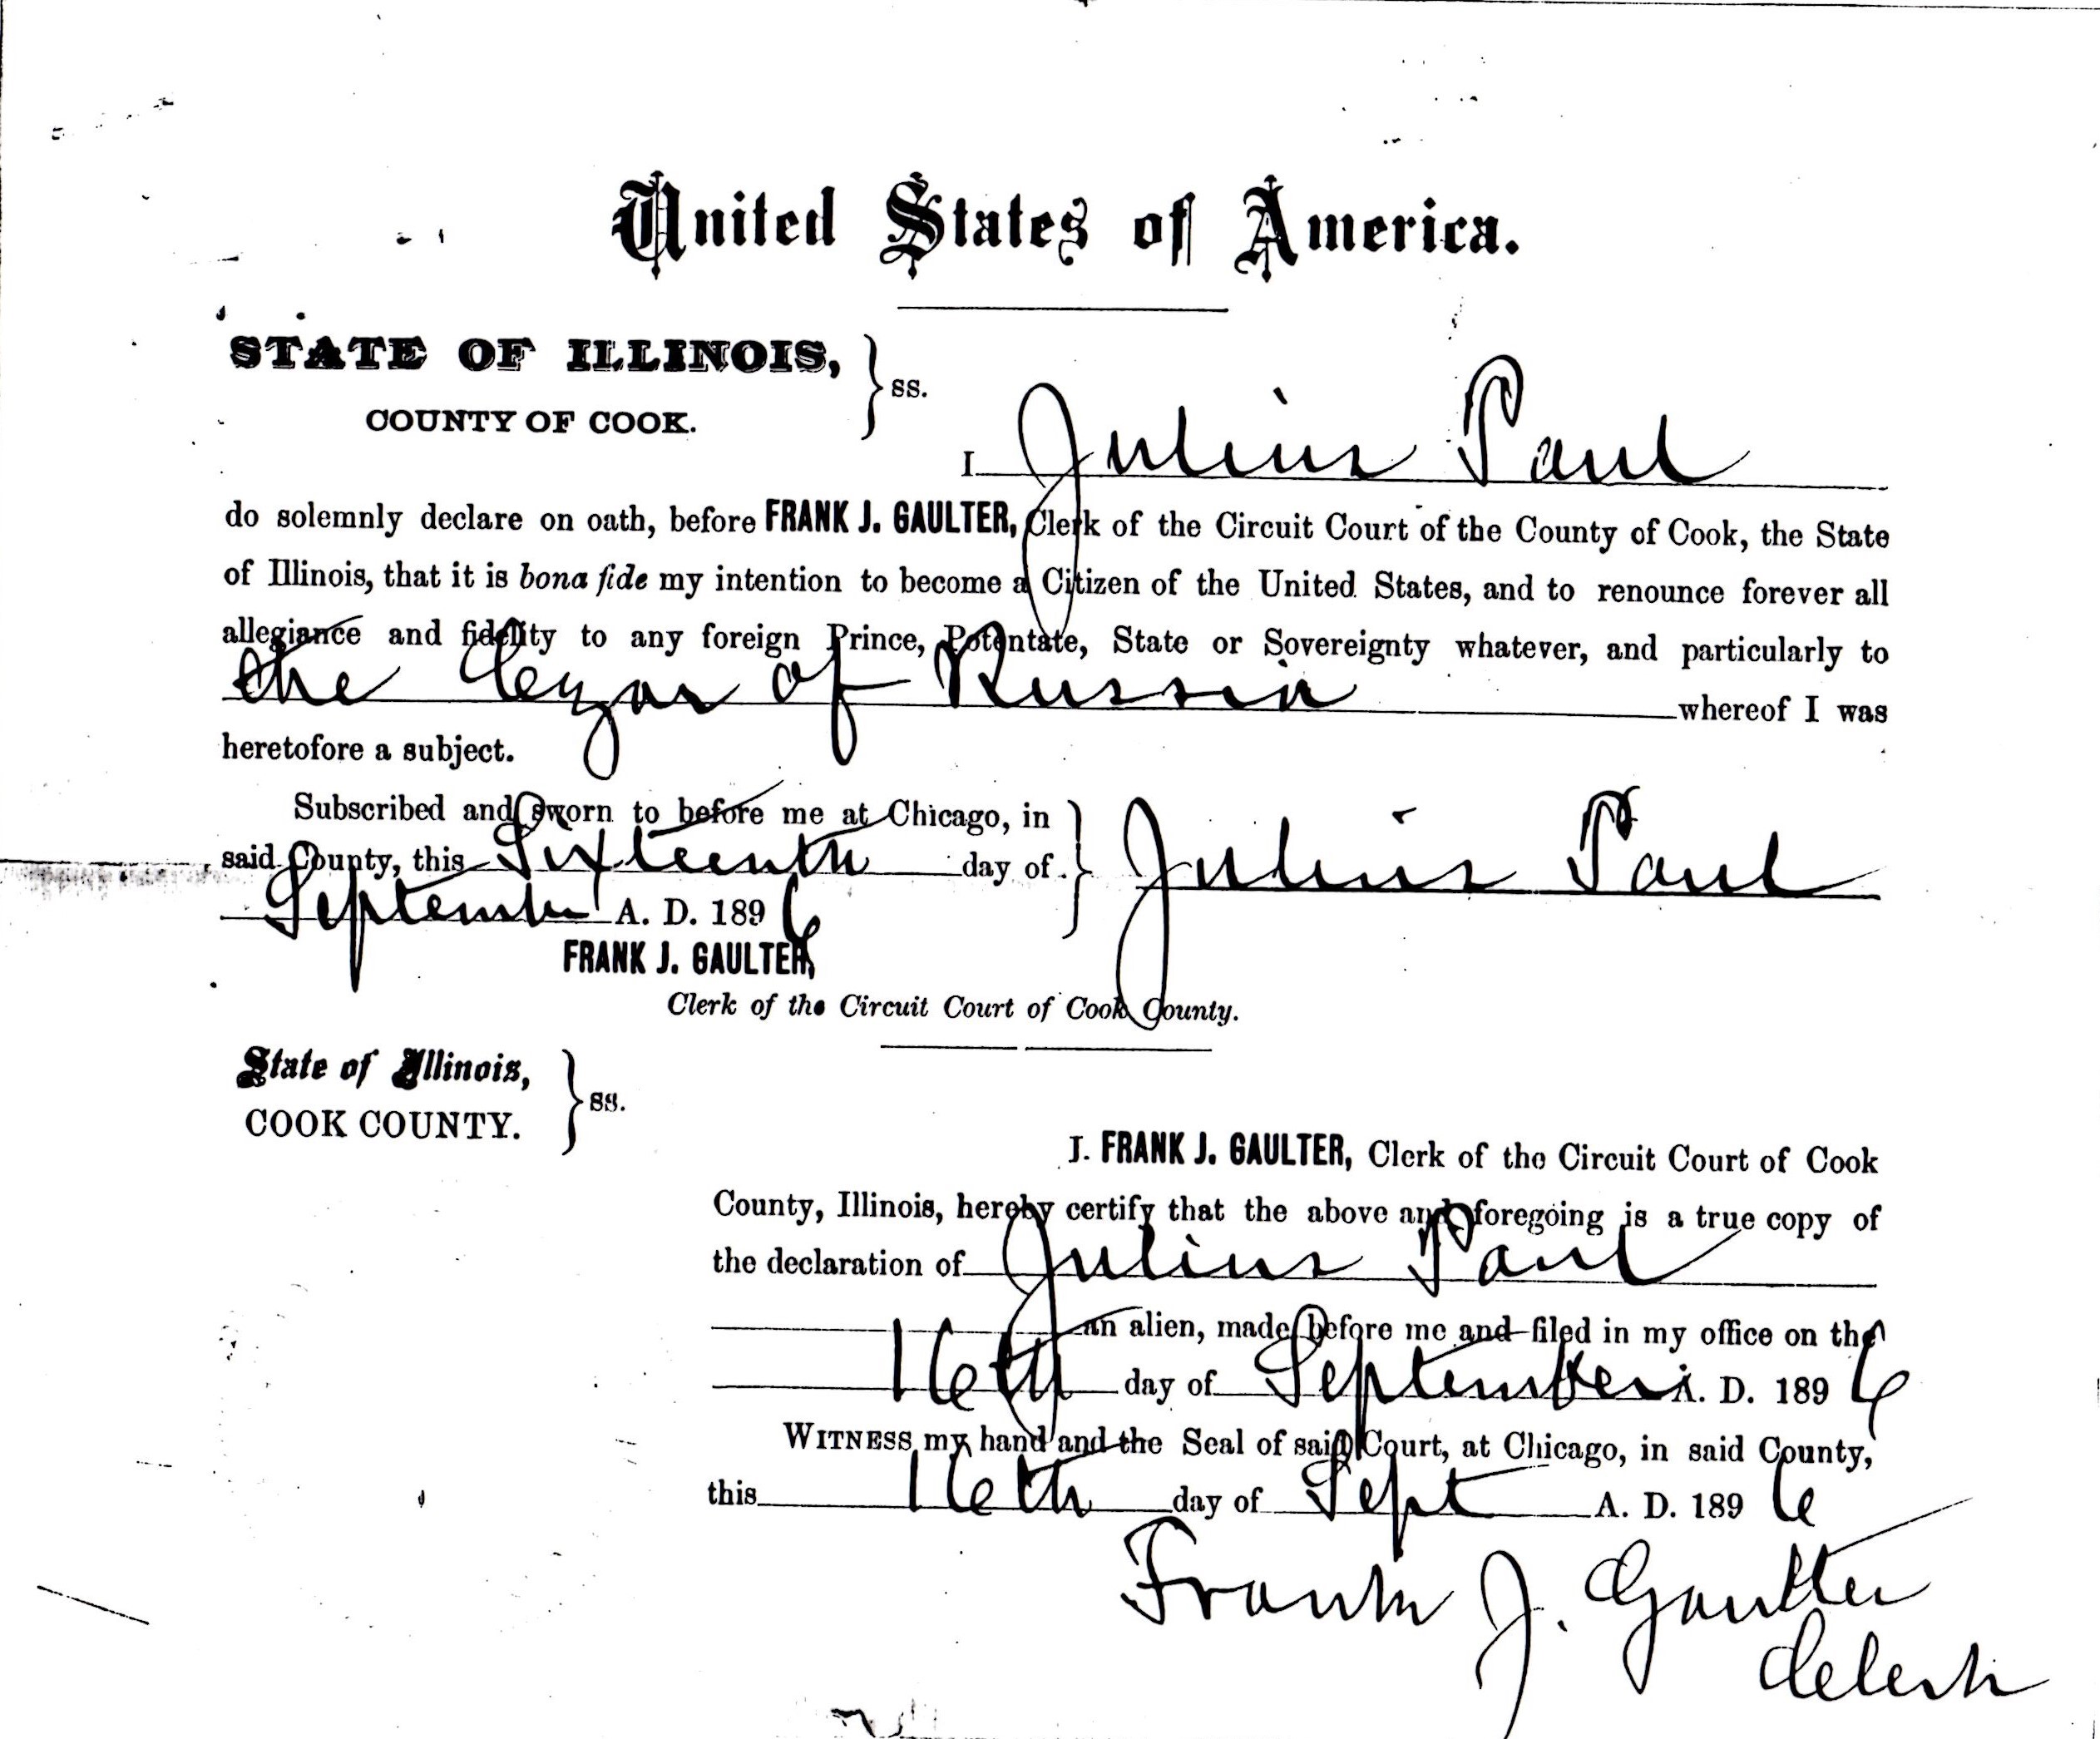 United States of America.
STATE OF ILLINOIS,
COUNTY OF COOK.
ss.
I Julius Paul
do solemnly declare on oath, before FRANK J. GAULTER, Clerk of the Circuit Court of the County of Cook, the State
of Illinois, that it is bona fide my intention to become a Citizen of the United States, and to renounce forever all
allegiance and fidelity to any foreign Prince, Potentate, State or Sovereignty whatever, and particularly to
the Czar of Russia whereof I was
heretofore a subject.
Subscribed and sworn to before me at Chicago, in
said County, this Sixteenth day of
September A. D. 1896
Julius Paul
FRANK J. GAULTER,
Clerk of the Circuit Court of Cook County.
State of Illinois,
COOK COUNTY.
ss.
I. FRANK J. GAULTER, Clerk of the Circuit Court of Cook
County, Illinois, hereby certify that the above and foregoing is a true copy of
the declaration of Julius Paul
an alien, made before me and filed in my office on the
16th day of September A. D. 1896
WITNESS my hand and the Seal of said Court, at Chicago, in said County,
this 16th day of Sept A. D. 1896
Frank J. Gaulter
Clerk